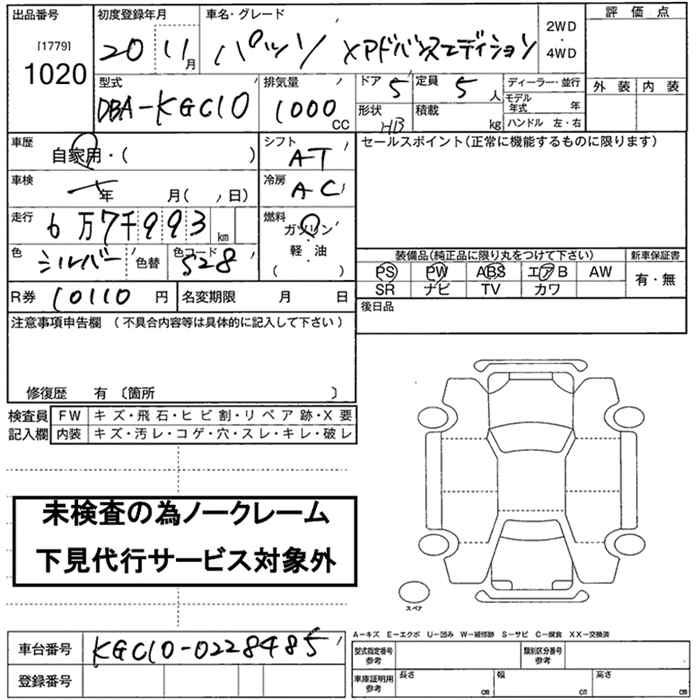 出品番号 初度登録年月 車名・グレード 2WD・4WD 評価点
[1779]
1020
20 11月 パッソ Xアドバンスエディション
型式 排気量 ドア 5 定員 5人 ディーラー・並行 外装 内装
DBA-KGC10 1000CC 形状 HB 積載 kg モデル年式 年
ハンドル 左・右
車歴 自家用・( ) シフト AT セールスポイント(正常に機能するものに限ります)
車検 年 月( 、日) 冷房 AC
走行 6万7千993km 燃料 ガソリン・軽・油 ( )
色 シルバー 色替 色コード S28
装備品(純正品に限り丸をつけて下さい) 新車保証書
PS PW ABS エアB AW 有・無
SR ナビ TV カワ
R券 10110円 名変期限 月 日 後日品
注意事項申告欄 (不具合内容等は具体的に記入して下さい)
修復歴 有 〔箇所 〕
検査員 FW キズ・飛石・ヒビ割・リペア跡・X要
記入欄 内装 キズ・汚レ・コゲ・穴・スレ・キレ・破レ
未検査の為ノークレーム
下見代行サービス対象外
スペア
A-キズ E-エクボ U-凹み W-補修跡 S-サビ C-腐食 XX-交換済
車台番号 KGC10-0228485
型式指定番号 参考 類別区分番号 参考
登録番号
車庫証明用 参考 長さ cm 幅 cm 高さ cm